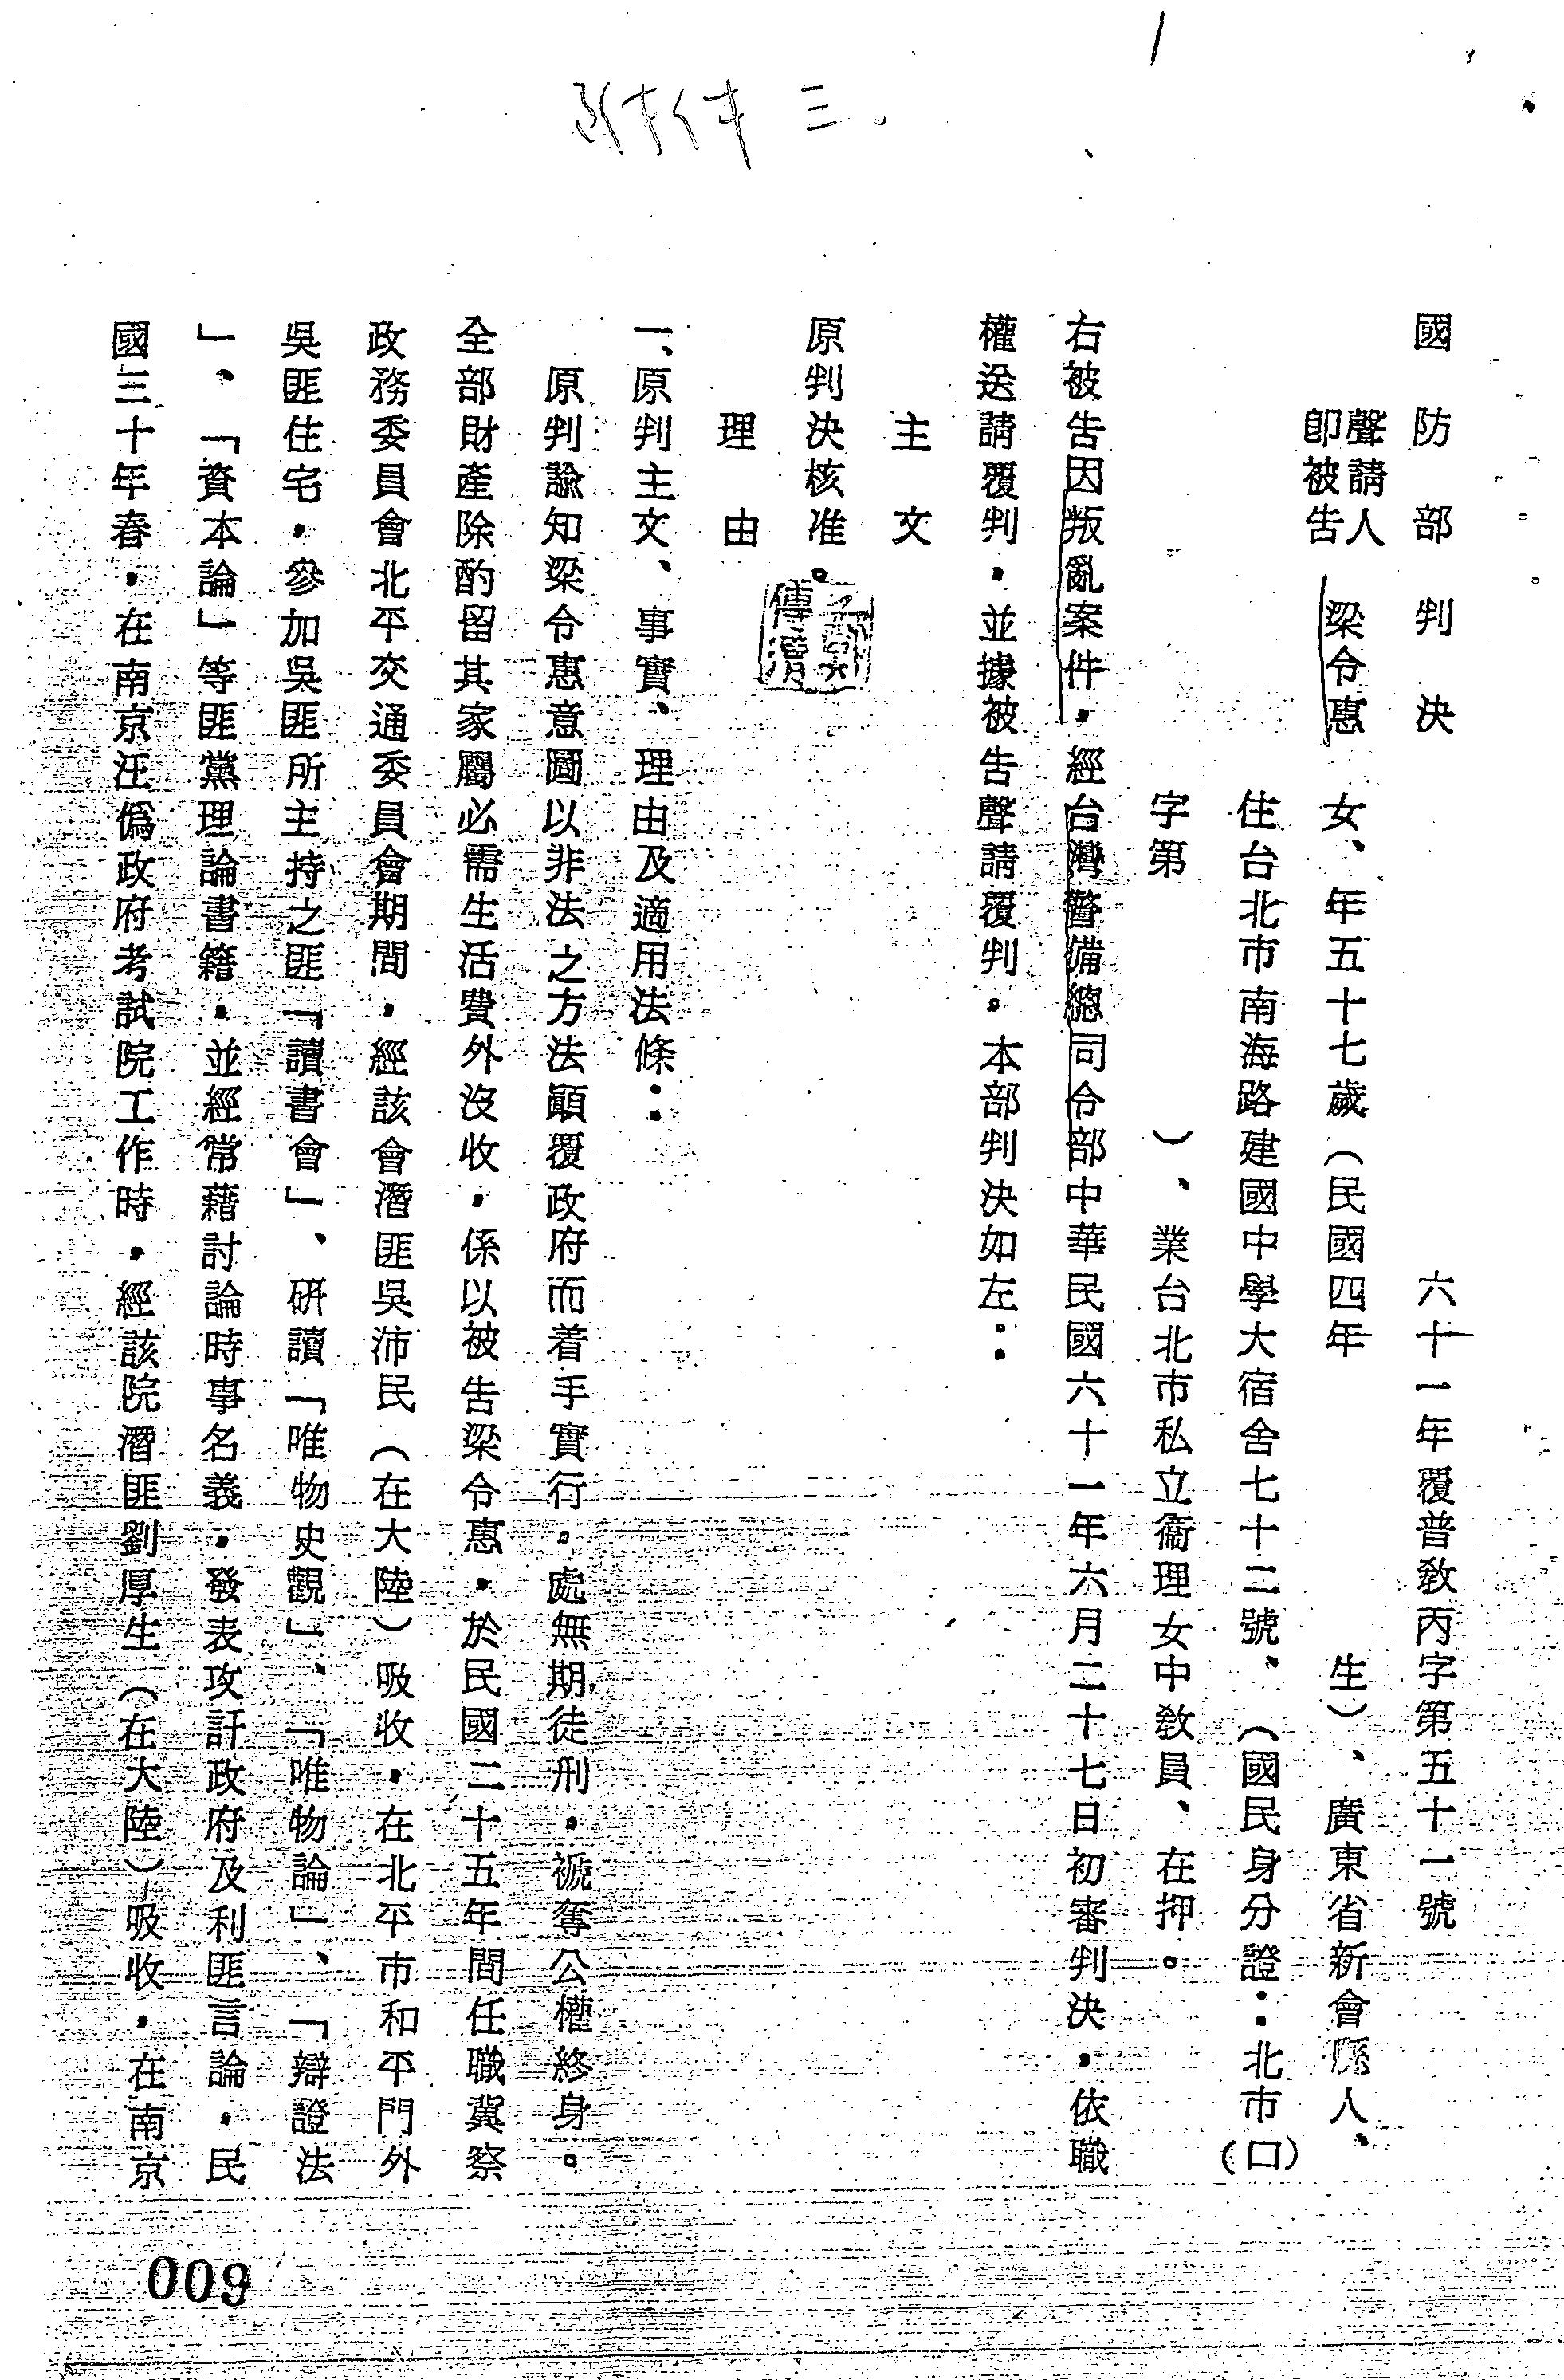 附件三。
國防部判決　六十一年覆普教丙字第五十一號
聲請人
即被告　梁令惠　女、年五十七歲（民國四年　生）、廣東省新會縣人、
住台北市南海路建國中學大宿舍七十二號、（國民身分證：北市(口)
字第　）、業台北市私立衞理女中教員、在押。
右被告因叛亂案件，經台灣警備總司令部中華民國六十一年六月二十七日初審判決，依職
權送請覆判，並據被告聲請覆判，本部判決如左：
主文
原判決核准。
理由
一、原判主文、事實、理由及適用法條：
原判諭知梁令惠意圖以非法之方法顚覆政府而着手實行，處無期徒刑，褫奪公權終身。
全部財產除酌留其家屬必需生活費外沒收，係以被告梁令惠，於民國二十五年間任職冀察
政務委員會北平交通委員會期間，經該會潛匪吳沛民（在大陸）吸收，在北平市和平門外
吳匪住宅，參加吳匪所主持之匪「讀書會」、研讀「唯物史觀」、「唯物論」、「辯證法
」、「資本論」等匪黨理論書籍，並經常藉討論時事名義，發表攻訐政府及利匪言論，民
國三十年春，在南京汪僞政府考試院工作時，經該院潛匪劉厚生（在大陸）吸收，在南京
009